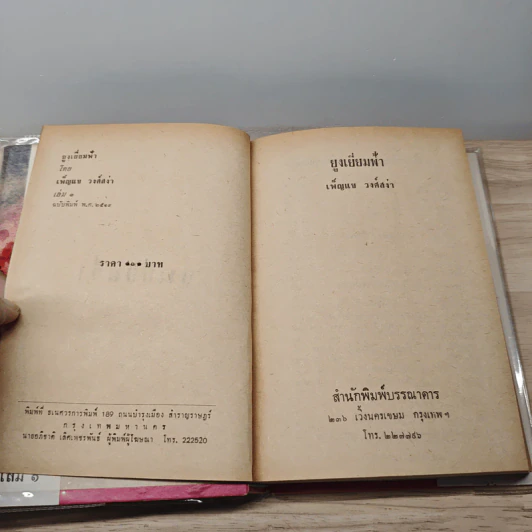 ยูงเยี่ยมฟ้า
โดย
เพ็ญแข วงศ์สง่า
เล่ม ๑
ฉบับพิมพ์ พ.ศ. ๒๕๑๑
ราคา บาท
พิมพ์ที่ ธเนศวรการพิมพ์ 189 ถนนบำรุงเมือง สำราญราษฎร์
กรุงเทพมหานคร
นายอภิชาติ เลิศเพชรพันธ์ ผู้พิมพ์ผู้โฆษณา โทร. 222520
ยูงเยี่ยมฟ้า
เพ็ญแข วงศ์สง่า
สำนักพิมพ์บรรณาคาร
๒๓๖ เวิ้งนครเขษม กรุงเทพ ฯ
โทร. ๒๒๗๗๕๖
เล่ม ๑